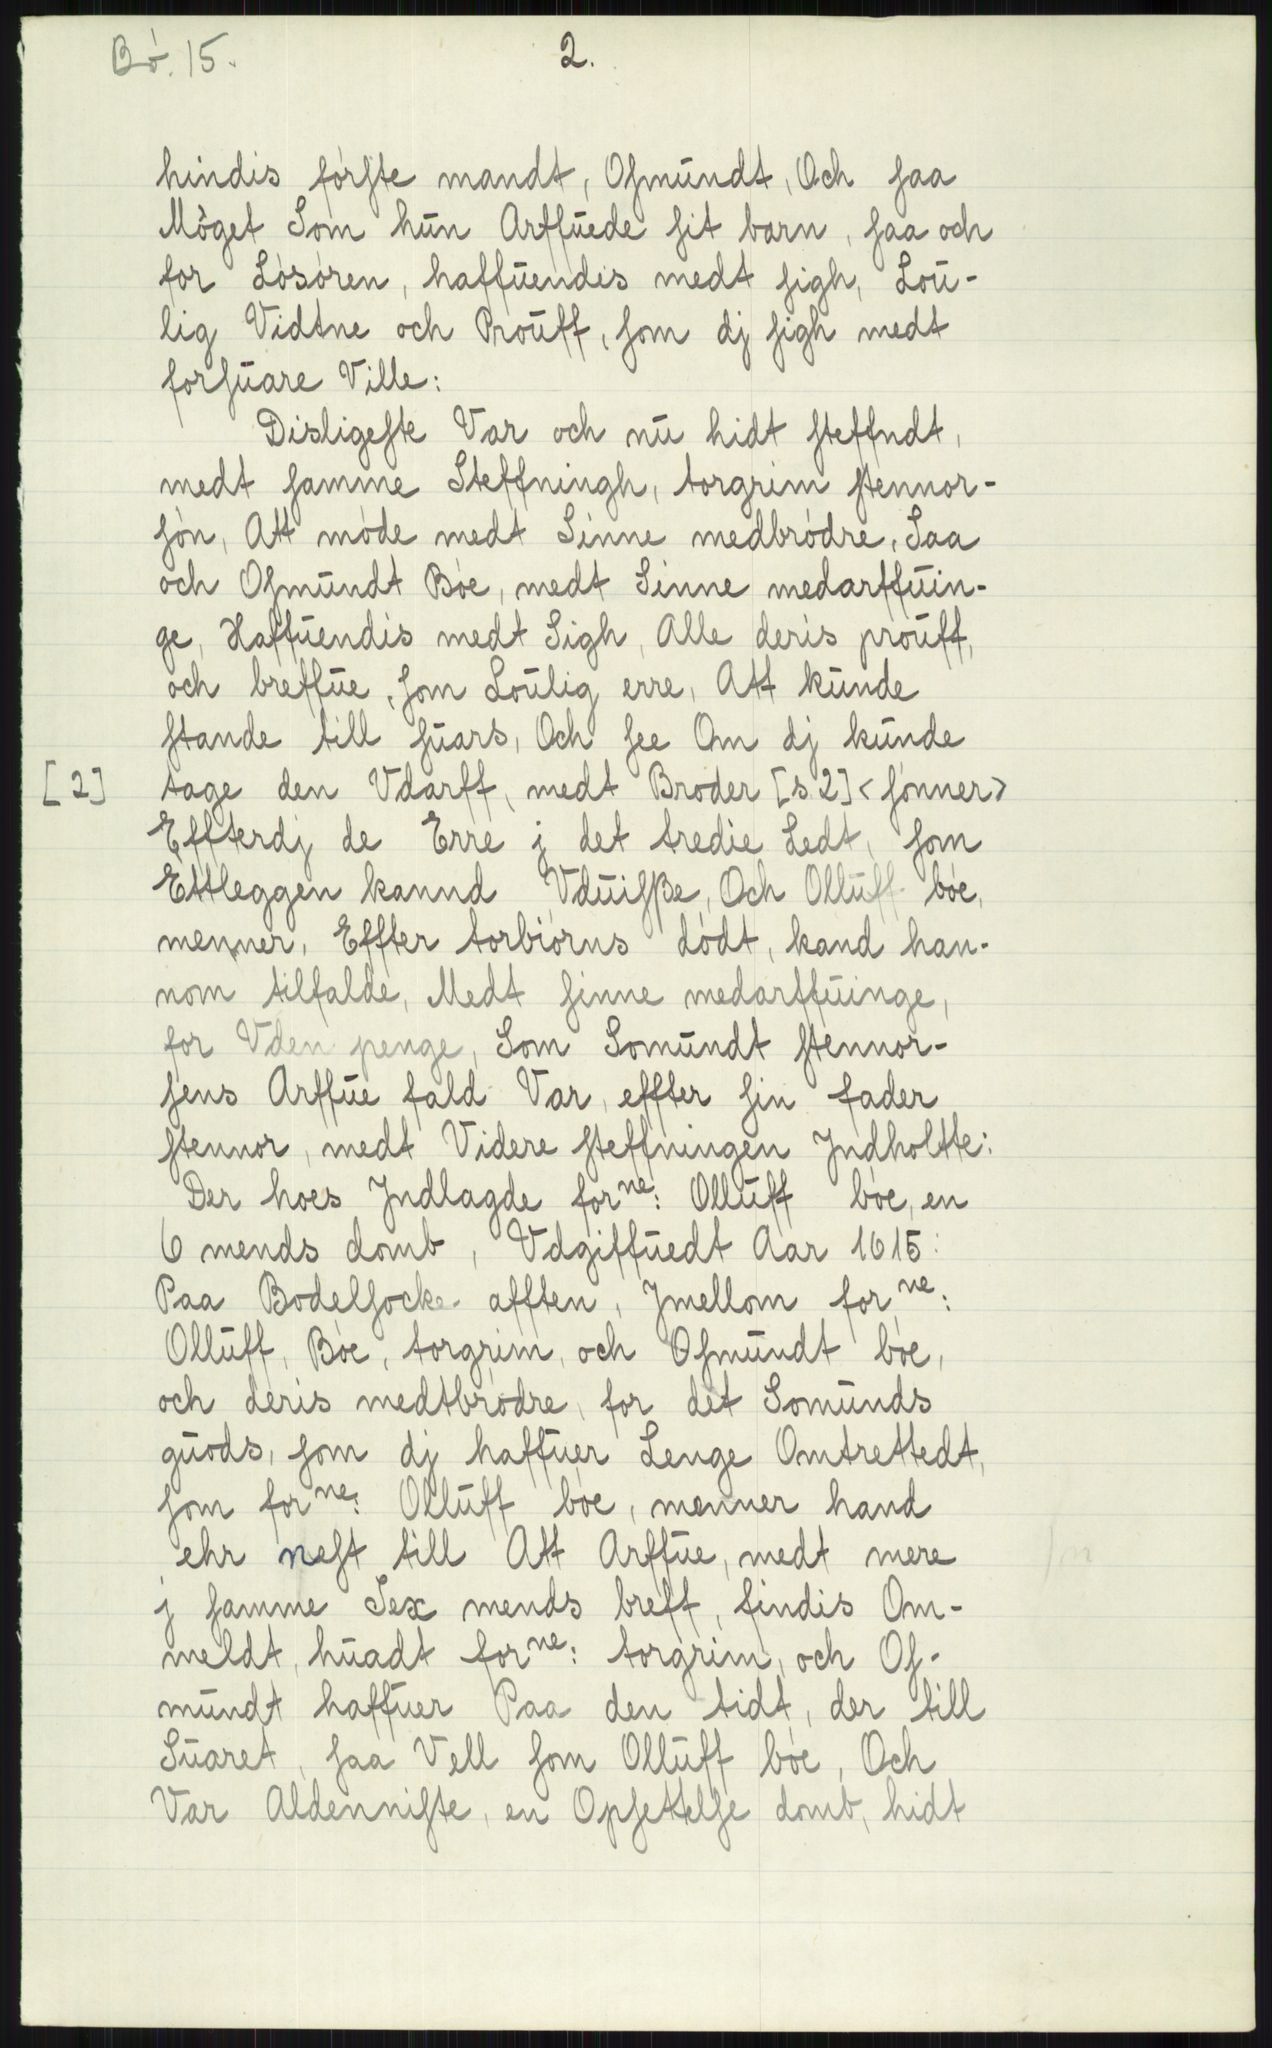 Bó. 15.
2.
hindis fórste mandt, Osmundt, Och saa
Móget Som hun Arffuede sit barn, saa och
for Lósóren, haffuendis medt sigh, Lou-
lig Vidtne och Prouff, som dj sigh medt
forsuare Ville:
Disligeste Var och nu hidt steffndt,
medt samme Steffningh, torgrim stennor-
són, Att móde medt Sinne medbródre, Saa
och Osmundt Bóe, medt Sinne medarffuin-
ge, Haffuendis medt Sigh, Alle deris prouff,
och breffue, som Loulig erre, Att kunde
stande till suars, Och see Om dj kunde
[2] tage den Vdarff, medt Broder [s 2] <sónner>
Effterdj de Erre j det tredie Ledt, som
Ettleggen kannd Vduisße, Och Olluff bóe,
menner, Effter torbiórns dódt, kand han-
nom tilfalde, Medt sinne medarffuinge,
for Vden penge, Som Somundt stennor-
sens Arffue fald Var, effter sin fader
stennor, medt Videre steffningen Jndholtte:
Der hoes Jndlagde forne: Olluff bóe, en
6 mends domb, Vdgiffuedt Aar 1615:
Paa Bodelsocke afften, Jmellom forne:
Olluff, Bóe, torgrim, och Osmundt bóe,
och deris medtbródre, for det Somunds
guods, som dj haffuer Lenge Omtrettedt,
som forne: Olluff bóe, menner hand
ehr nest till Att Arffue, medt mere
j samme Sex mends breff, findis Om-
meldt, huadt forne: torgrim, och Os-
mundt haffuer Paa den tidt, der till
Suaret, saa Vell som Olluff bóe, Och
Var Aldenniste, en Opsettelse domb, hidt